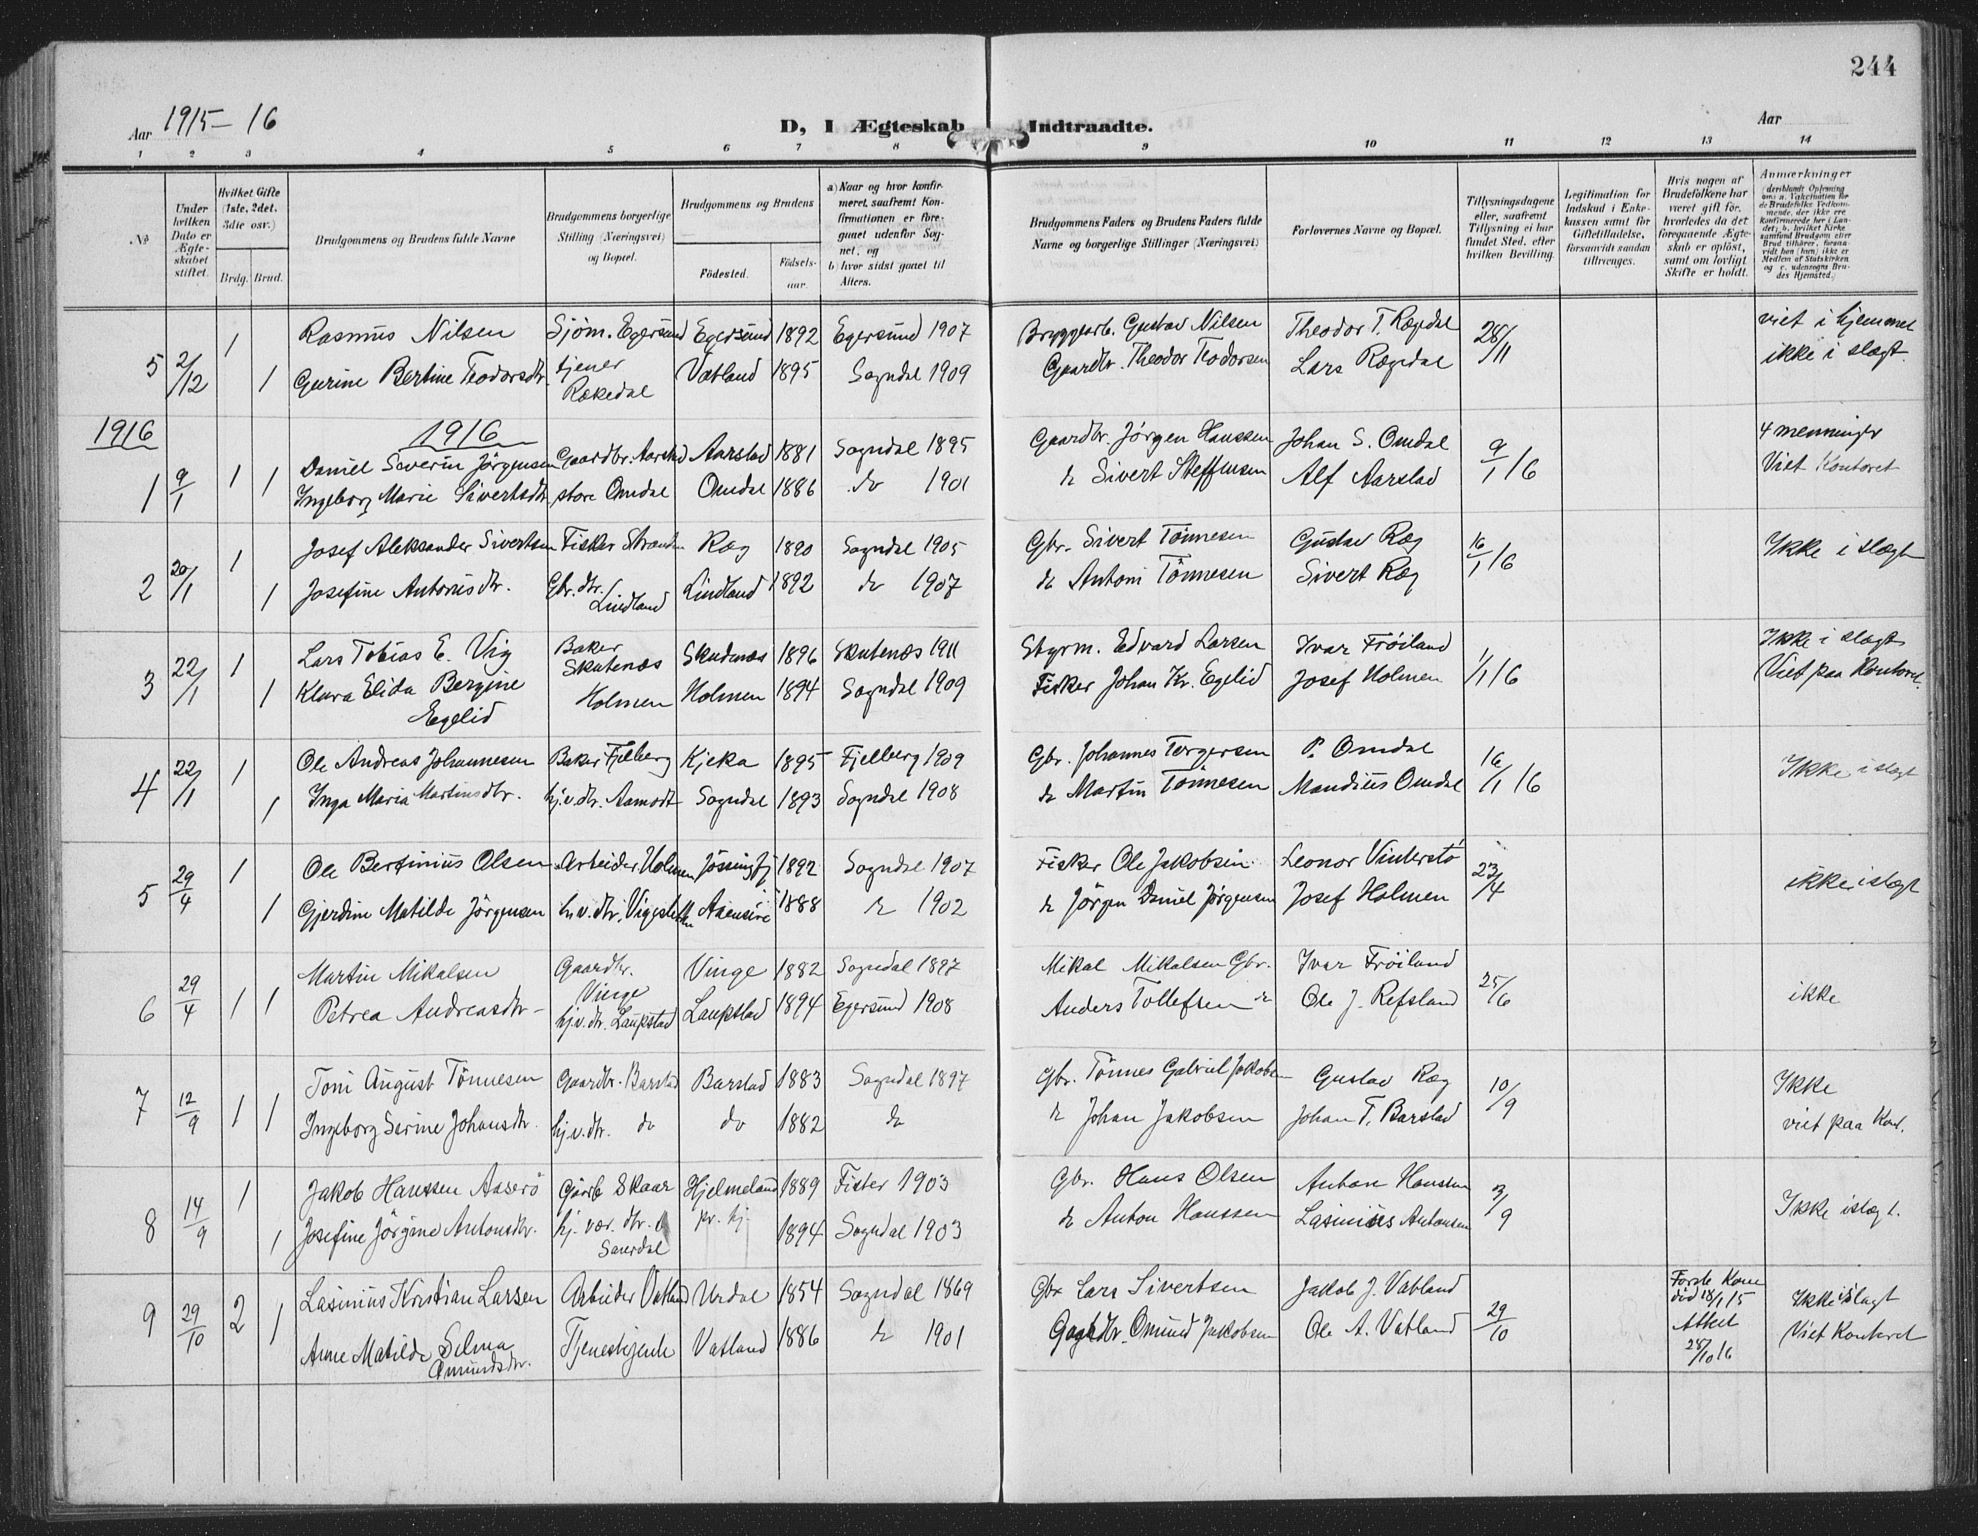 244
Aar 1915-16
D, I Ægteskab Indtraadte.
Aar
1 2 3 4 5 6 7 8 9 10 11 12 13 14
No
Under hvilken Dato er Ægteskabet stiftet.
Hvilket Gifte (1ste, 2det, 3die osv.)
Brdg. Brud.
Brudgommens og Brudens fulde Navne
Brudgommens borgerlige Stilling (Næringsvei) og Bopæl.
Brudgommens og Brudens
Födested.
Födselsaar.
a) Naar og hvor konfirmeret, saafremt Konfirmationen er foregaaet udenfor Sognet, og
b) hvor sidst gaaet til Alters.
Brudgommens Faders og Brudens Faders fulde Navne og borgerlige Stillinger (Næringsvei)
Forlovernes Navne og Bopæl.
Tillysningsdagene eller, saafremt Tillysning ei har fundet Sted, efter hvilken Bevilling.
Legitimation for Indskud i Enkekassen samt for Giftetilladelse, forsaavidt saadan tiltrænges.
Hvis nogen af Brudefolkene har været gift för, hvorledes da det foregaaende Ægteskab er oplöst, samt om lovligt Skifte er holdt.
Anmærkninger
5 2/12 1 Rasmus Nilsen Sjöm. Egersund Egersund 1892 Egersund 1907 Bryggearb. Gustav Nilsen Theodor T. Rægdal 28/11 viet i hjemmet
1 Gurine Bertine Teodorsdtr. tjener Rækedal Vatland 1895 Sogndal 1909 Gaardbr. Theodor Teodorsen Lars Rægdal ikke i slægt
1916
1916
1 9/1 1 1 Daniel Severin Jörgensen Gaardbr. Aarstad Aarstad 1881 Sogndal 1895 Gaardbr. Jörgen Hanssen Johan S. Omdal 9/1 16 4 menninger
Ingeborg Marie Sivertsdtr. store Omdal Omdal 1886 do 1901 do Sivert Steffensen Alf Aarstad Viet Kontoret
2 20/1 1 Josef Aleksander Sivertsen Fisker Stranden Ræg 1890 Sogndal 1905 Gbr. Sivert Tönnesen Gustav Ræg 16/1 16 Ikke i slægt
1 Josefine Antonisdtr. Gbr. dtr. Lindland Lindland 1892 do 1907 do Antoni Tönnesen Sivert Ræg
3 22/1 1 Lars Tobias E. Vig Baker Skutenæs Skudenæs 1896 Skutenæs 1911 Styrm. Edvard Larsen Ivar Fröiland 1/1 16 Ikke i slægt
1 Klara Elida Bergine Egelid Holmen Holmen 1894 Sogndal 1909 Fisker Johan Kr. Egelid Josef Holmen Viet paa Kontoret.
4 22/1 1 Ole Andreas Johannesen Baker Fjelberg Kjeka 1895 Fjelberg 1909 Gbr. Johannes Torgersen P. Omdal 16/1 16 Ikke i slægt
1 Inga Maria Martinsdtr. hj.v.dtr. Aamodt Sogndal 1893 Sogndal 1908 do Martin Tönnesen Mandius Omdal
5 29/4 1 Ole Bertinius Olsen Arbeider Holmen Jössingfj 1892 Sogndal 1907 Fisker Ole Jakobsen Leonor Vinterstö 23/4 ikke i slægt
1 Gjerdine Matilde Jörgensen hj.v.dtr. Aaensire 1888 do 1902 do Jörgen Daniel Jörgensen Josef Holmen
6 29/4 1 1 Martin Mikalsen Gaardbr. Vinge Vinge 1882 Sogndal 1897 Mikal Mikalsen Gbr. Ivar Fröiland 25/6 ikke
Petrea Andreasdtr hj.v.dtr. Laupstad Laupstad 1894 Egersund 1908 Anders Tollefsen do Ole J. Refsland
7 12/9 1 1 Toni August Tönnesen Gaardbr. Barstad Barstad 1883 Sogndal 1897 Gbr. Tönnes Gabriel Jakobsen Gustav Ræg 10/9 Ikke
Ingeborg Serine Johansdtr. hj.v.dtr. do do 1882 do do Johan Jakobsen Johan T. Barstad viet paa Kont.
8 14/9 1 Jakob Hanssen Aaserö Gbr Skaar Hjelmeland 1889 Fister 1903 Gbr. Hans Olsen Anton Hanssen 3/9 Ikke i slægt.
1 Josefine Jörgine Antonsdtr. hj. vær. dtr. Saurdal pr. hj. 1894 Sogndal 1903 do Anton Hanssen Lasinius Antonsen
9 29/10 2 1 Lasinius Kristian Larsen Arbeider Vatland Urdal 1854 Sogndal 1869 Gbr Lars Sivertsen Jakob J. Vatland 29/10 Förste Kone död 18/1 15 Attest 28/10 16 Ikke i slægt
Anne Matilde Selma Omundsdtr. Tjenestejente Vatland 1886 do 1901 Omund Jakobsen Ole A. Vatland Viet Kontoret